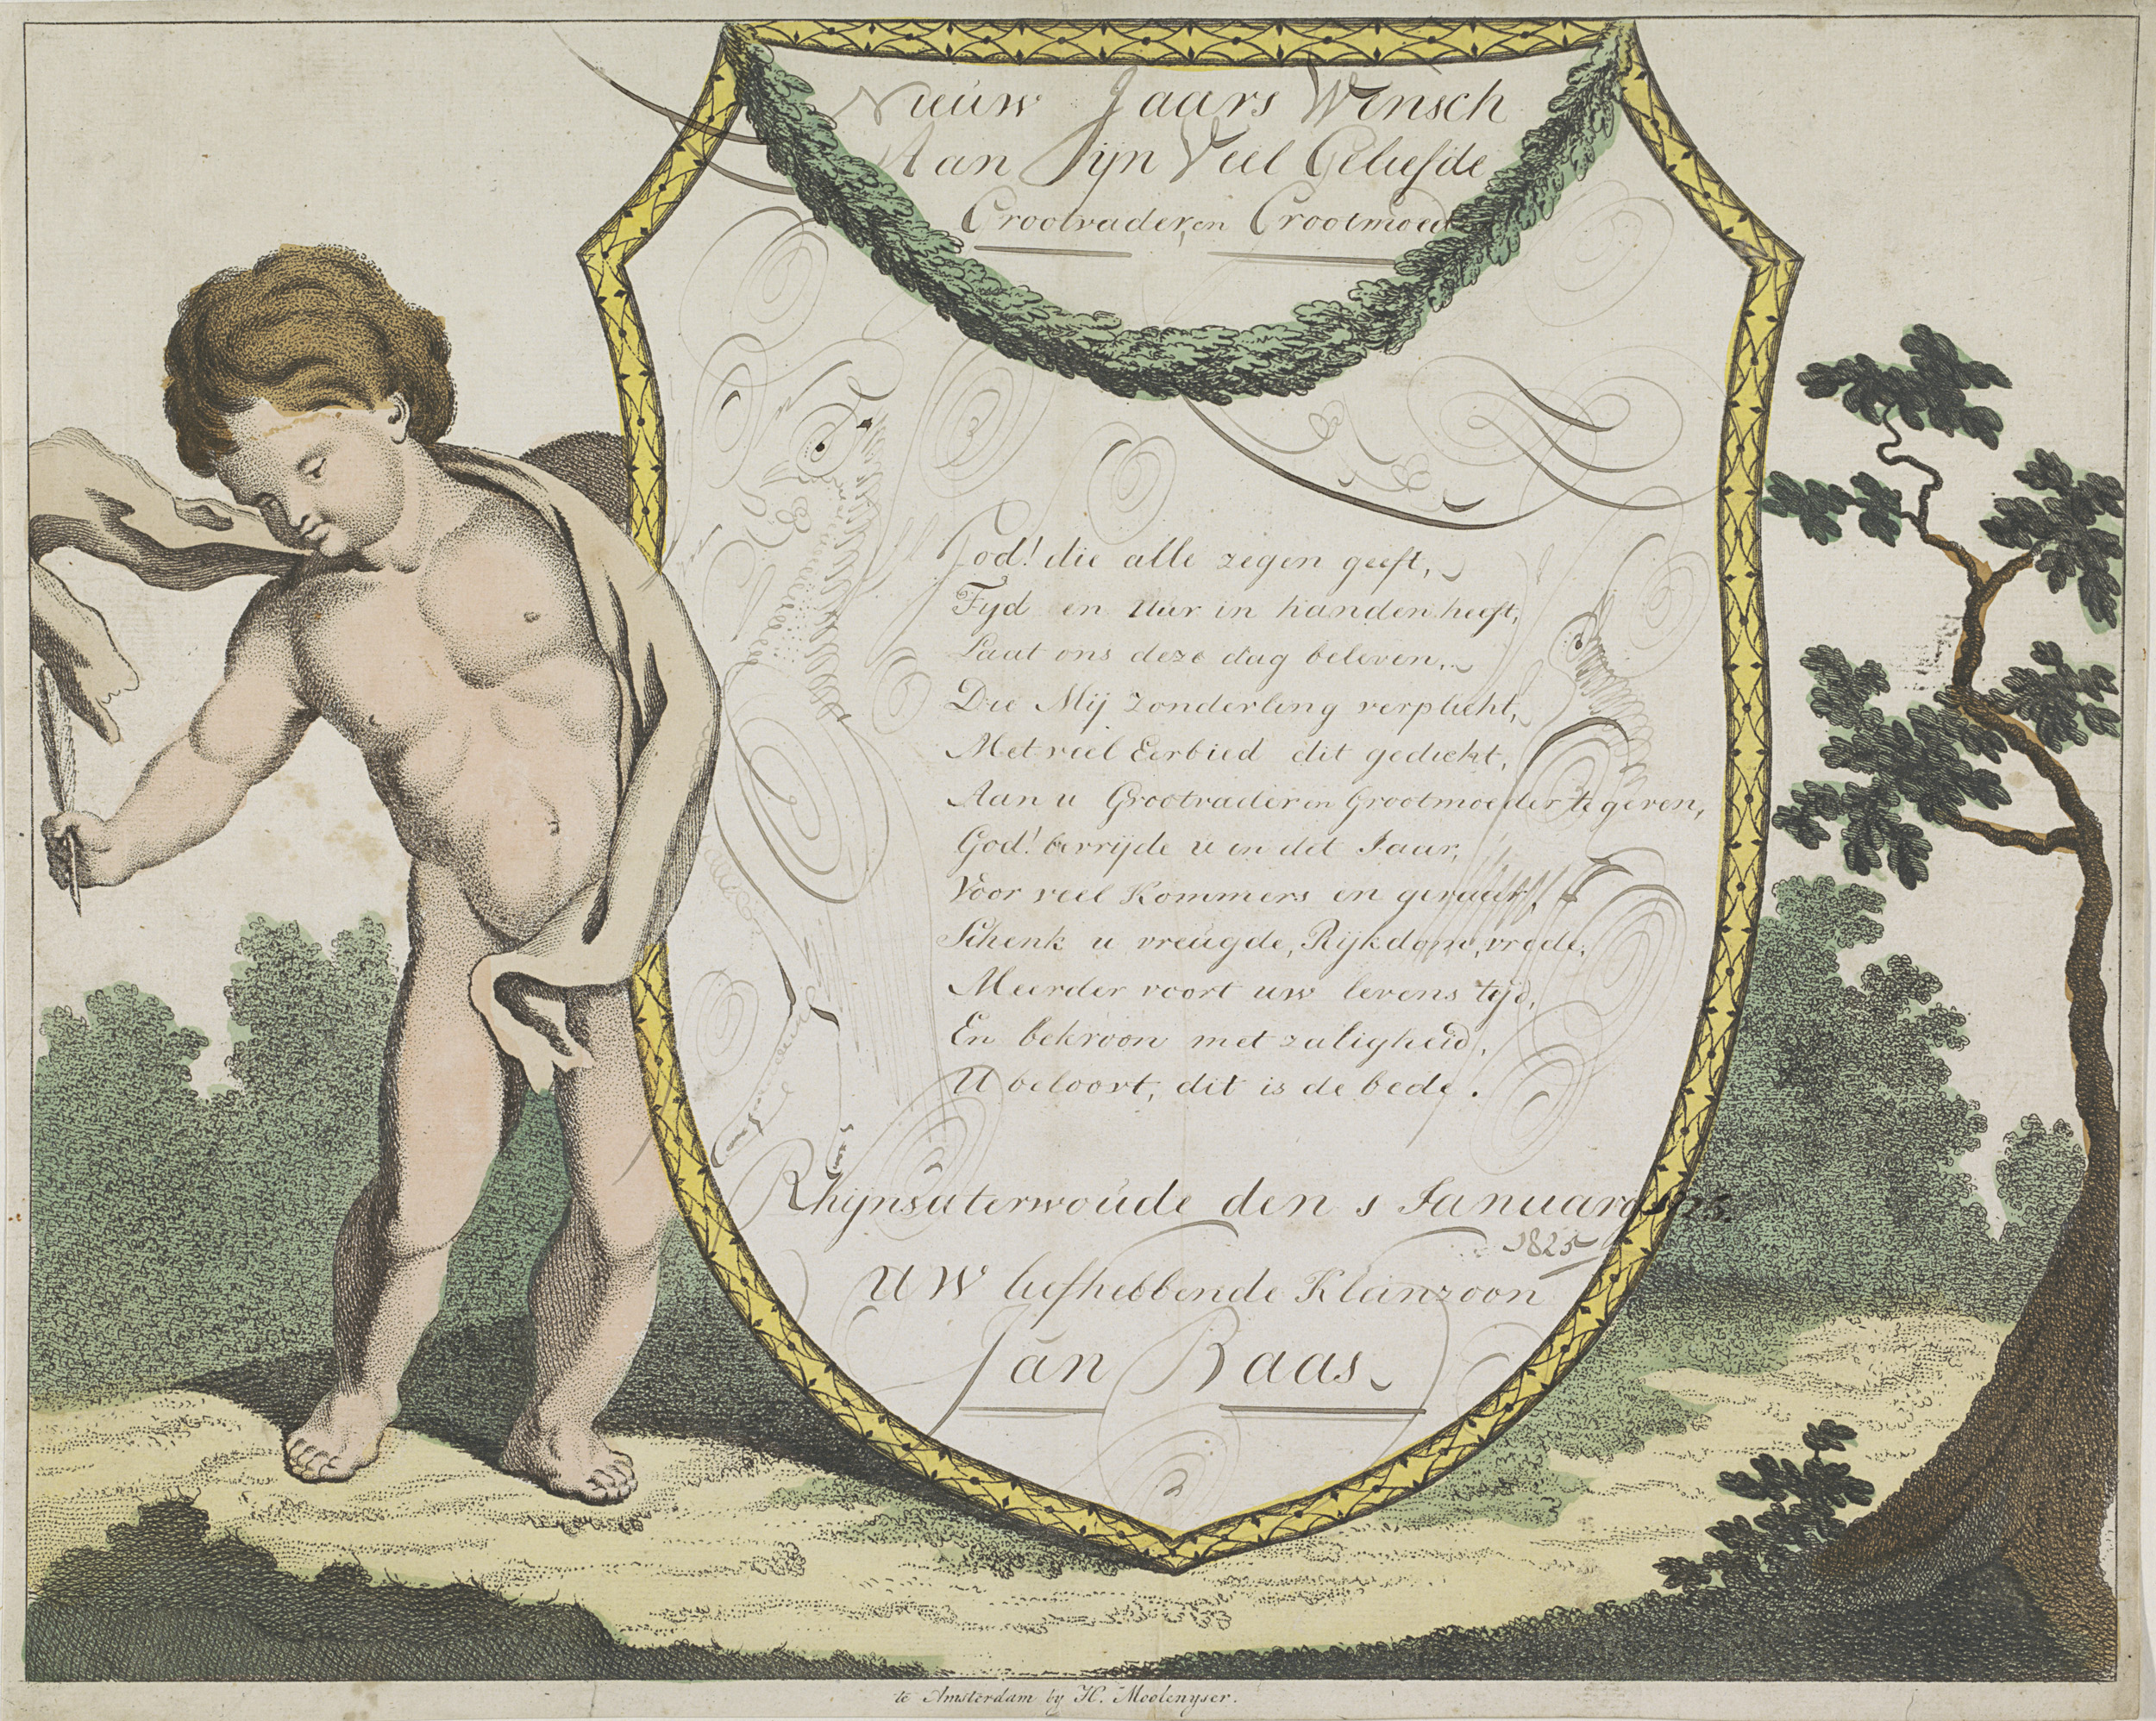 Nieuw Jaars Wensch
Aan Sijn Veel Geliefde
Grootvader, en Grootmoed
God! die alle zegen geeft,
Tyd en uur in handen heeft,
Laat ons deze dag beleven,
Die Mij zonderling verplicht,
Met veel Eerbied dit gedicht,
Aan u Grootvader en Grootmoeder te geven,
God! bevrijde u in dit Jaar,
Voor veel Kommers en gevaar,
Schenk u vreugde, Rijkdom, vrede,
Meerder voort uw levens tijd,
En bekroon met zaligheid,
U beloort, dit is de bede.
Rhijnsaterwoude den 1 Januarij
1825
UW liefhebbende Kleinzoon
Jan Raas
te Amsterdam by H. Moolenyser.